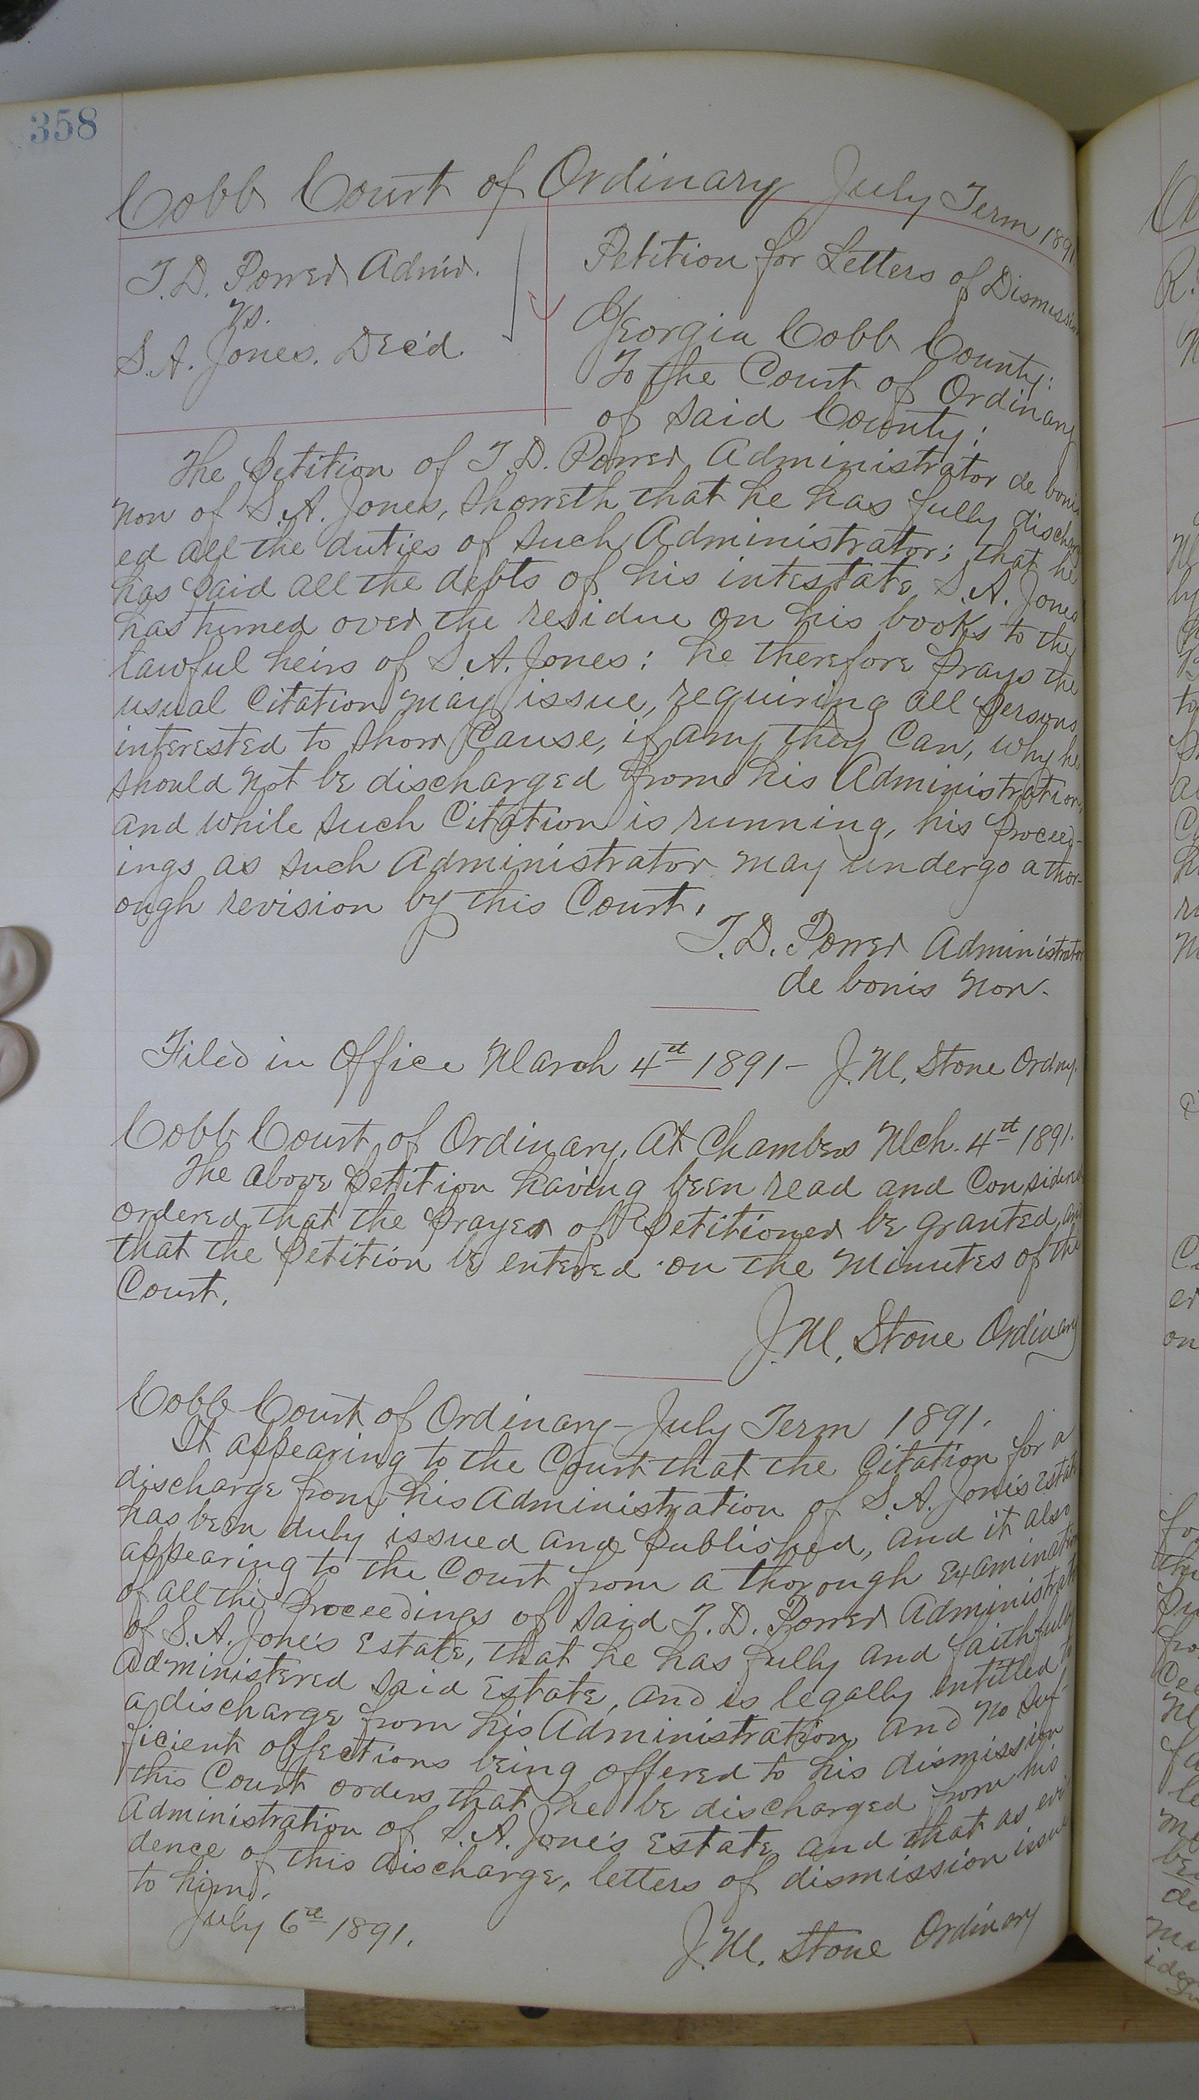 358
Cobb Court of Ordinary July Term 1891
T. D. Power Admr.
vs.
S. A. Jones. Dec'd.
Petition for Letters of Dismission
Georgia Cobb County:
To the Court of Ordinary
of said County:
The Petition of T. D. Power Administrator de bonis
non of S. A. Jones, showeth that he has fully discharg
ed all the duties of such Administrator; that he
has paid all the debts of his intestate S. A. Jones
has turned over the residue on his books to the
lawful heirs of S. A. Jones: he therefore prays the
usual Citation may issue, requiring all persons
interested to show Cause, if any they Can, why he
should not be discharged from his Administration,
and while such Citation is running, his proceed-
ings as such Administrator may undergo a thor-
ough revision by this Court.
T. D. Power Administrator
de bonis non.
Filed in Office March 4th 1891 - J. M. Stone Ordny.
Cobb Court of Ordinary, At Chambers Mch. 4th 1891.
The above petition having been read and Considered
ordered that the prayer of Petitioner be granted, and
that the petition be entered on the Minutes of the
Court.
J. M. Stone Ordinary
Cobb Court of Ordinary - July Term 1891.
It appearing to the Court that the Citation for a
discharge from his Administration of S. A. Jones Estate
has been duly issued and published, and it also
appearing to the Court from a thorough Examination
of all the proceedings of said T. D. Power Administrator
of S. A. Jone's Estate, that he has fully and faithfully
Administered said Estate, and is legally entitled to
a discharge from his Administration, and no suf-
ficient objections being offered to his dismission
this Court orders that he be discharged from his
Administration of S. A. Jone's Estate, and that as evi
dence of this discharge, letters of dismission issue
to him.
July 6th 1891.
J. M. Stone Ordinary